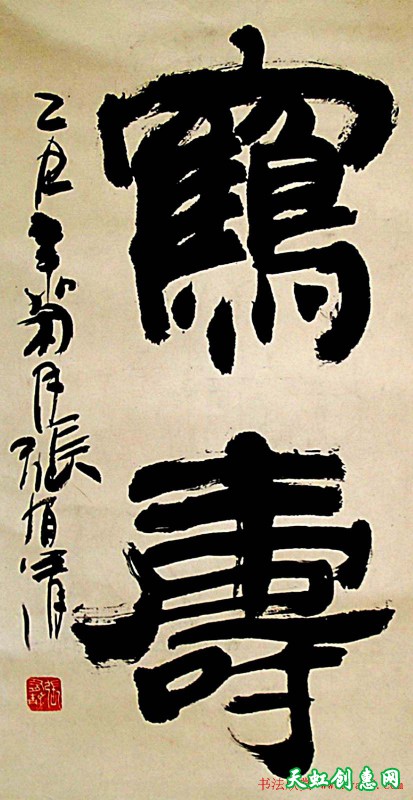 鶴壽
乙丑年菊月張清
书法
天虹创惠网